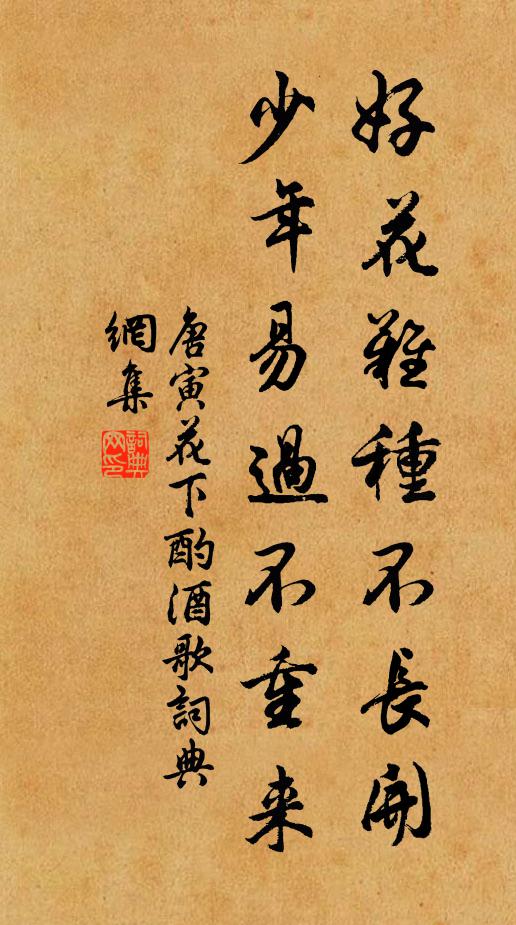 好花難種不長開
少年易過不重来
唐寅花下酌酒歌詞典
網集
詞典
网印